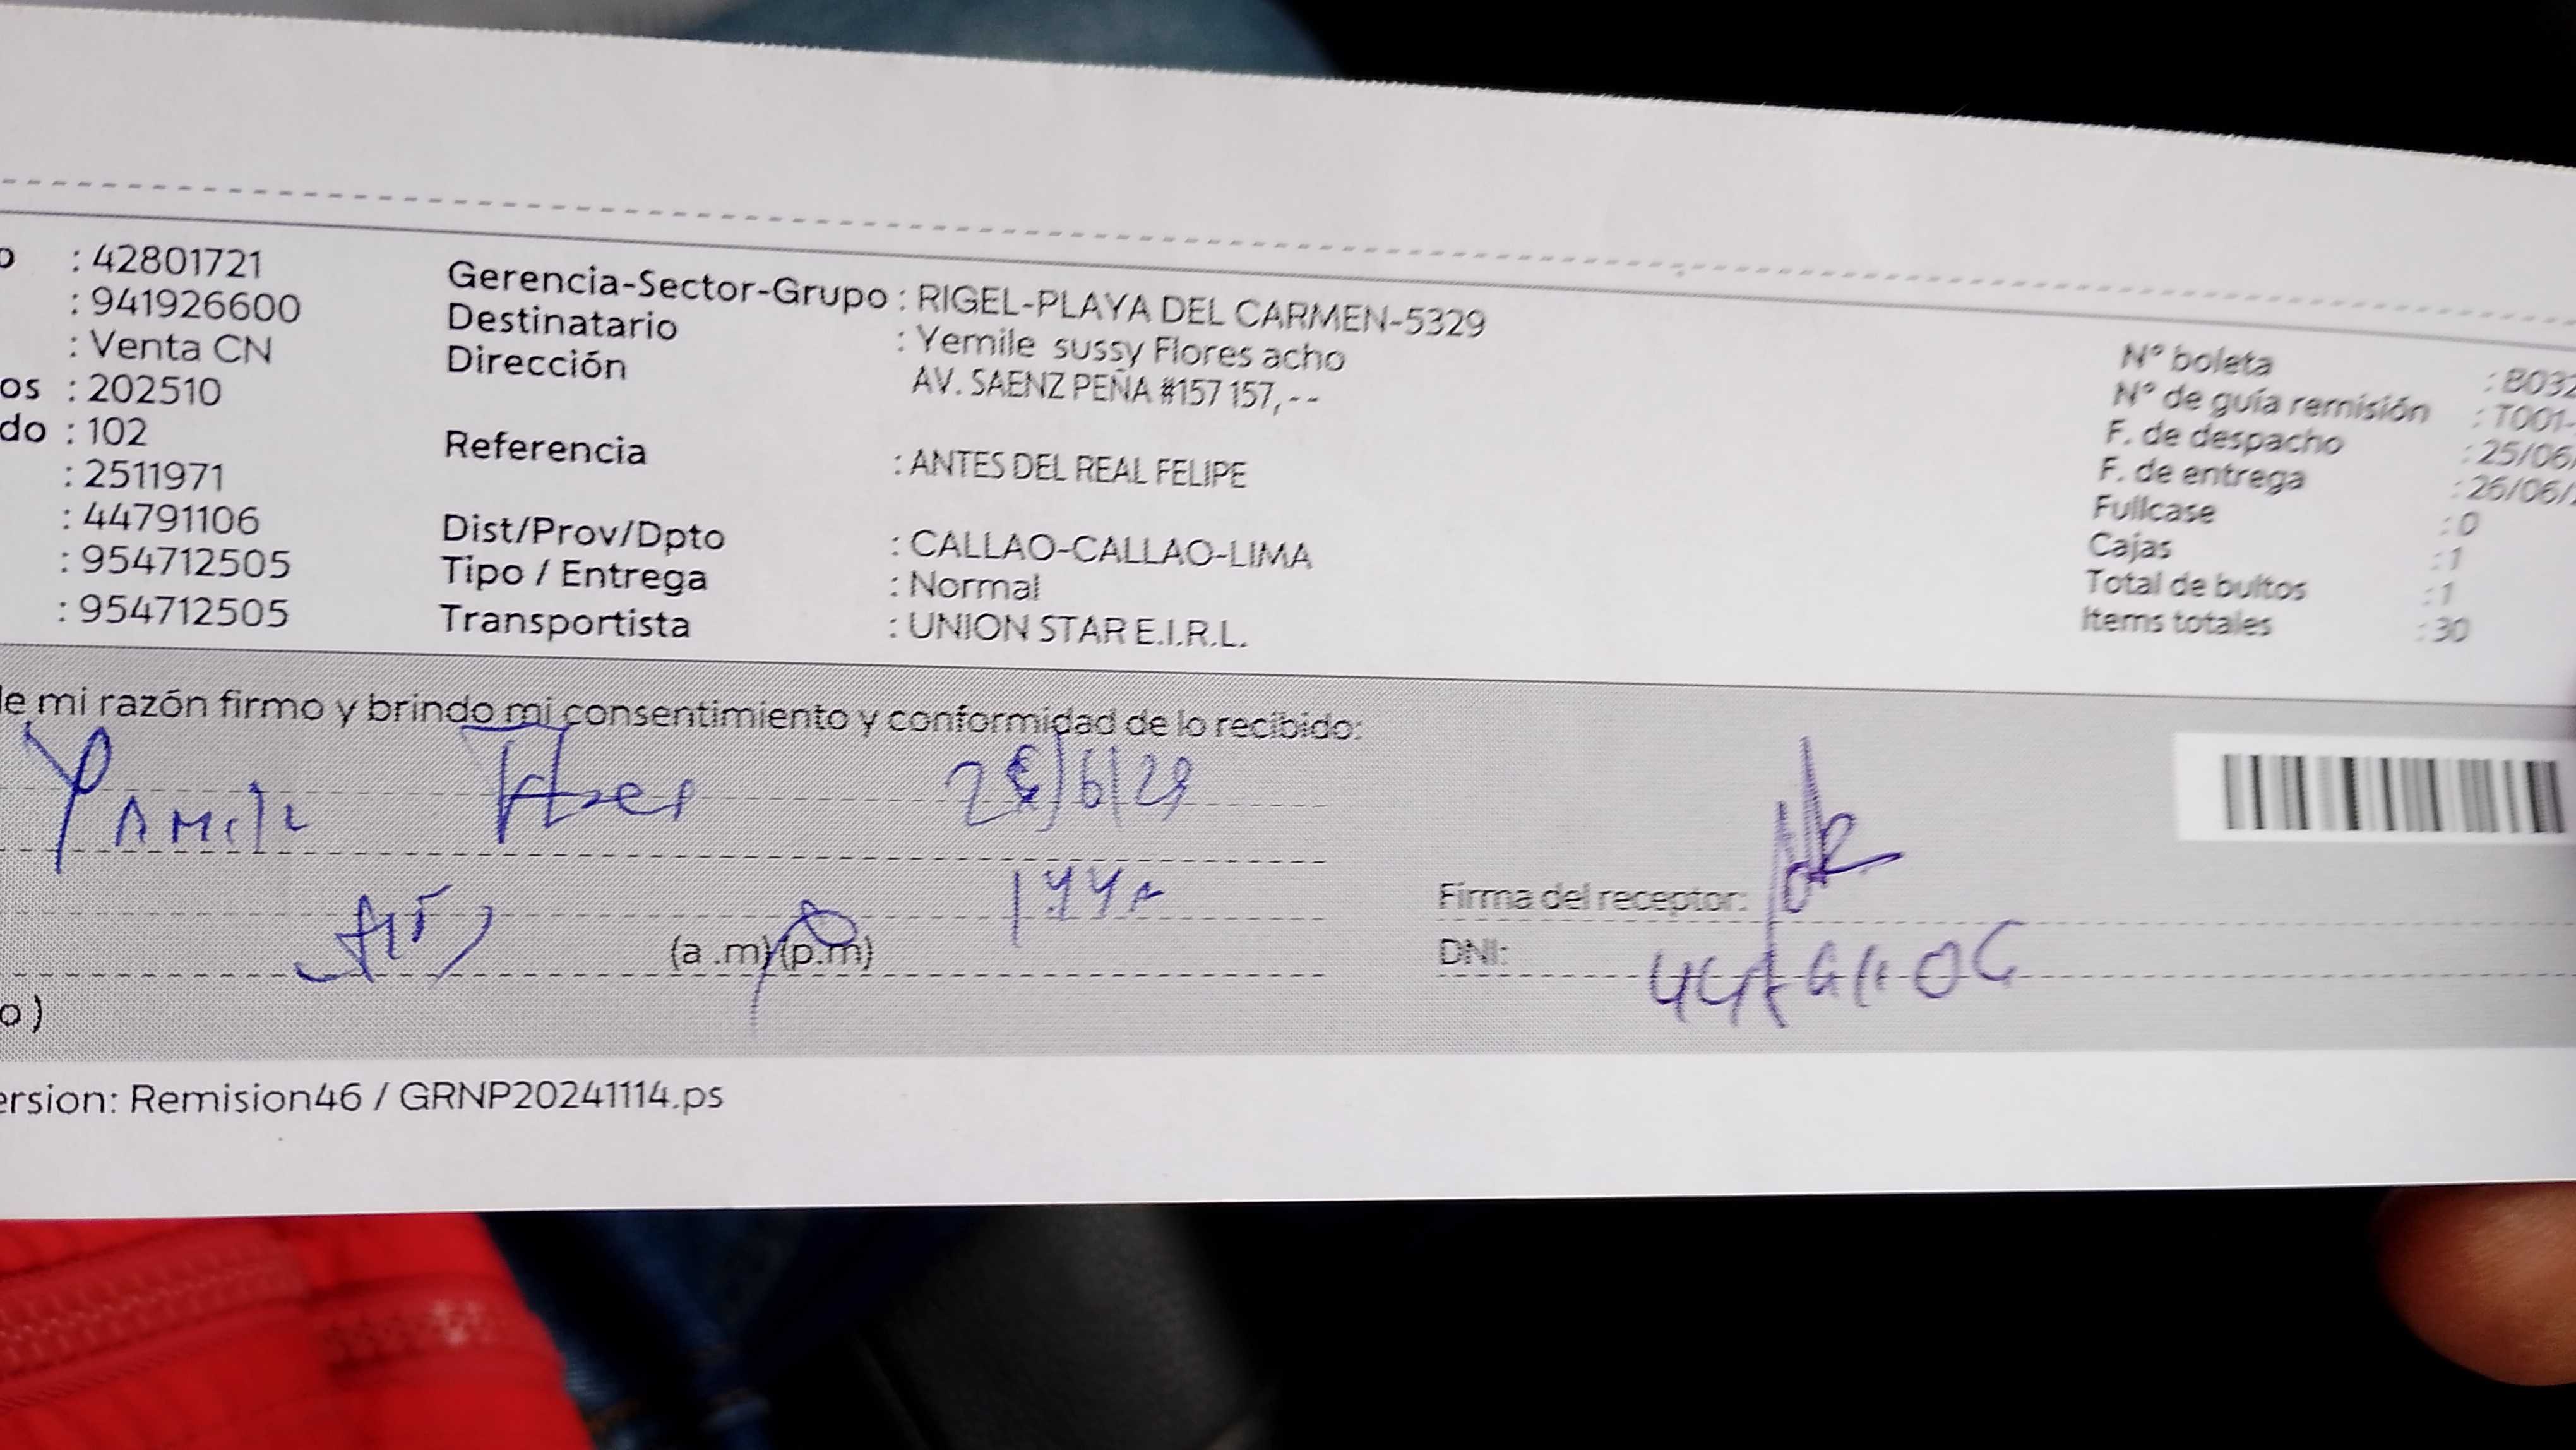 o : 42801721
: 941926600
: Venta CN
os : 202510
do : 102
: 2511971
: 44791106
: 954712505
: 954712505
Gerencia-Sector-Grupo : RIGEL-PLAYA DEL CARMEN-5329
Destinatario : Yemile sussy Flores acho
Dirección AV. SAENZ PEÑA #157 157, - -
Referencia : ANTES DEL REAL FELIPE
Dist/Prov/Dpto : CALLAO-CALLAO-LIMA
Tipo / Entrega : Normal
Transportista : UNION STAR E.I.R.L.
N° boleta : B032
N° de guía remisión : T001-
F. de despacho : 25/06/
F. de entrega : 26/06/
Fullcase : 0
Cajas : 1
Total de bultos : 1
Items totales : 30
de mi razón firmo y brindo mi consentimiento y conformidad de lo recibido:
(a .m) (p.m)
Firma del receptor:
DNI:
o )
ersion: Remision46 / GRNP20241114.ps